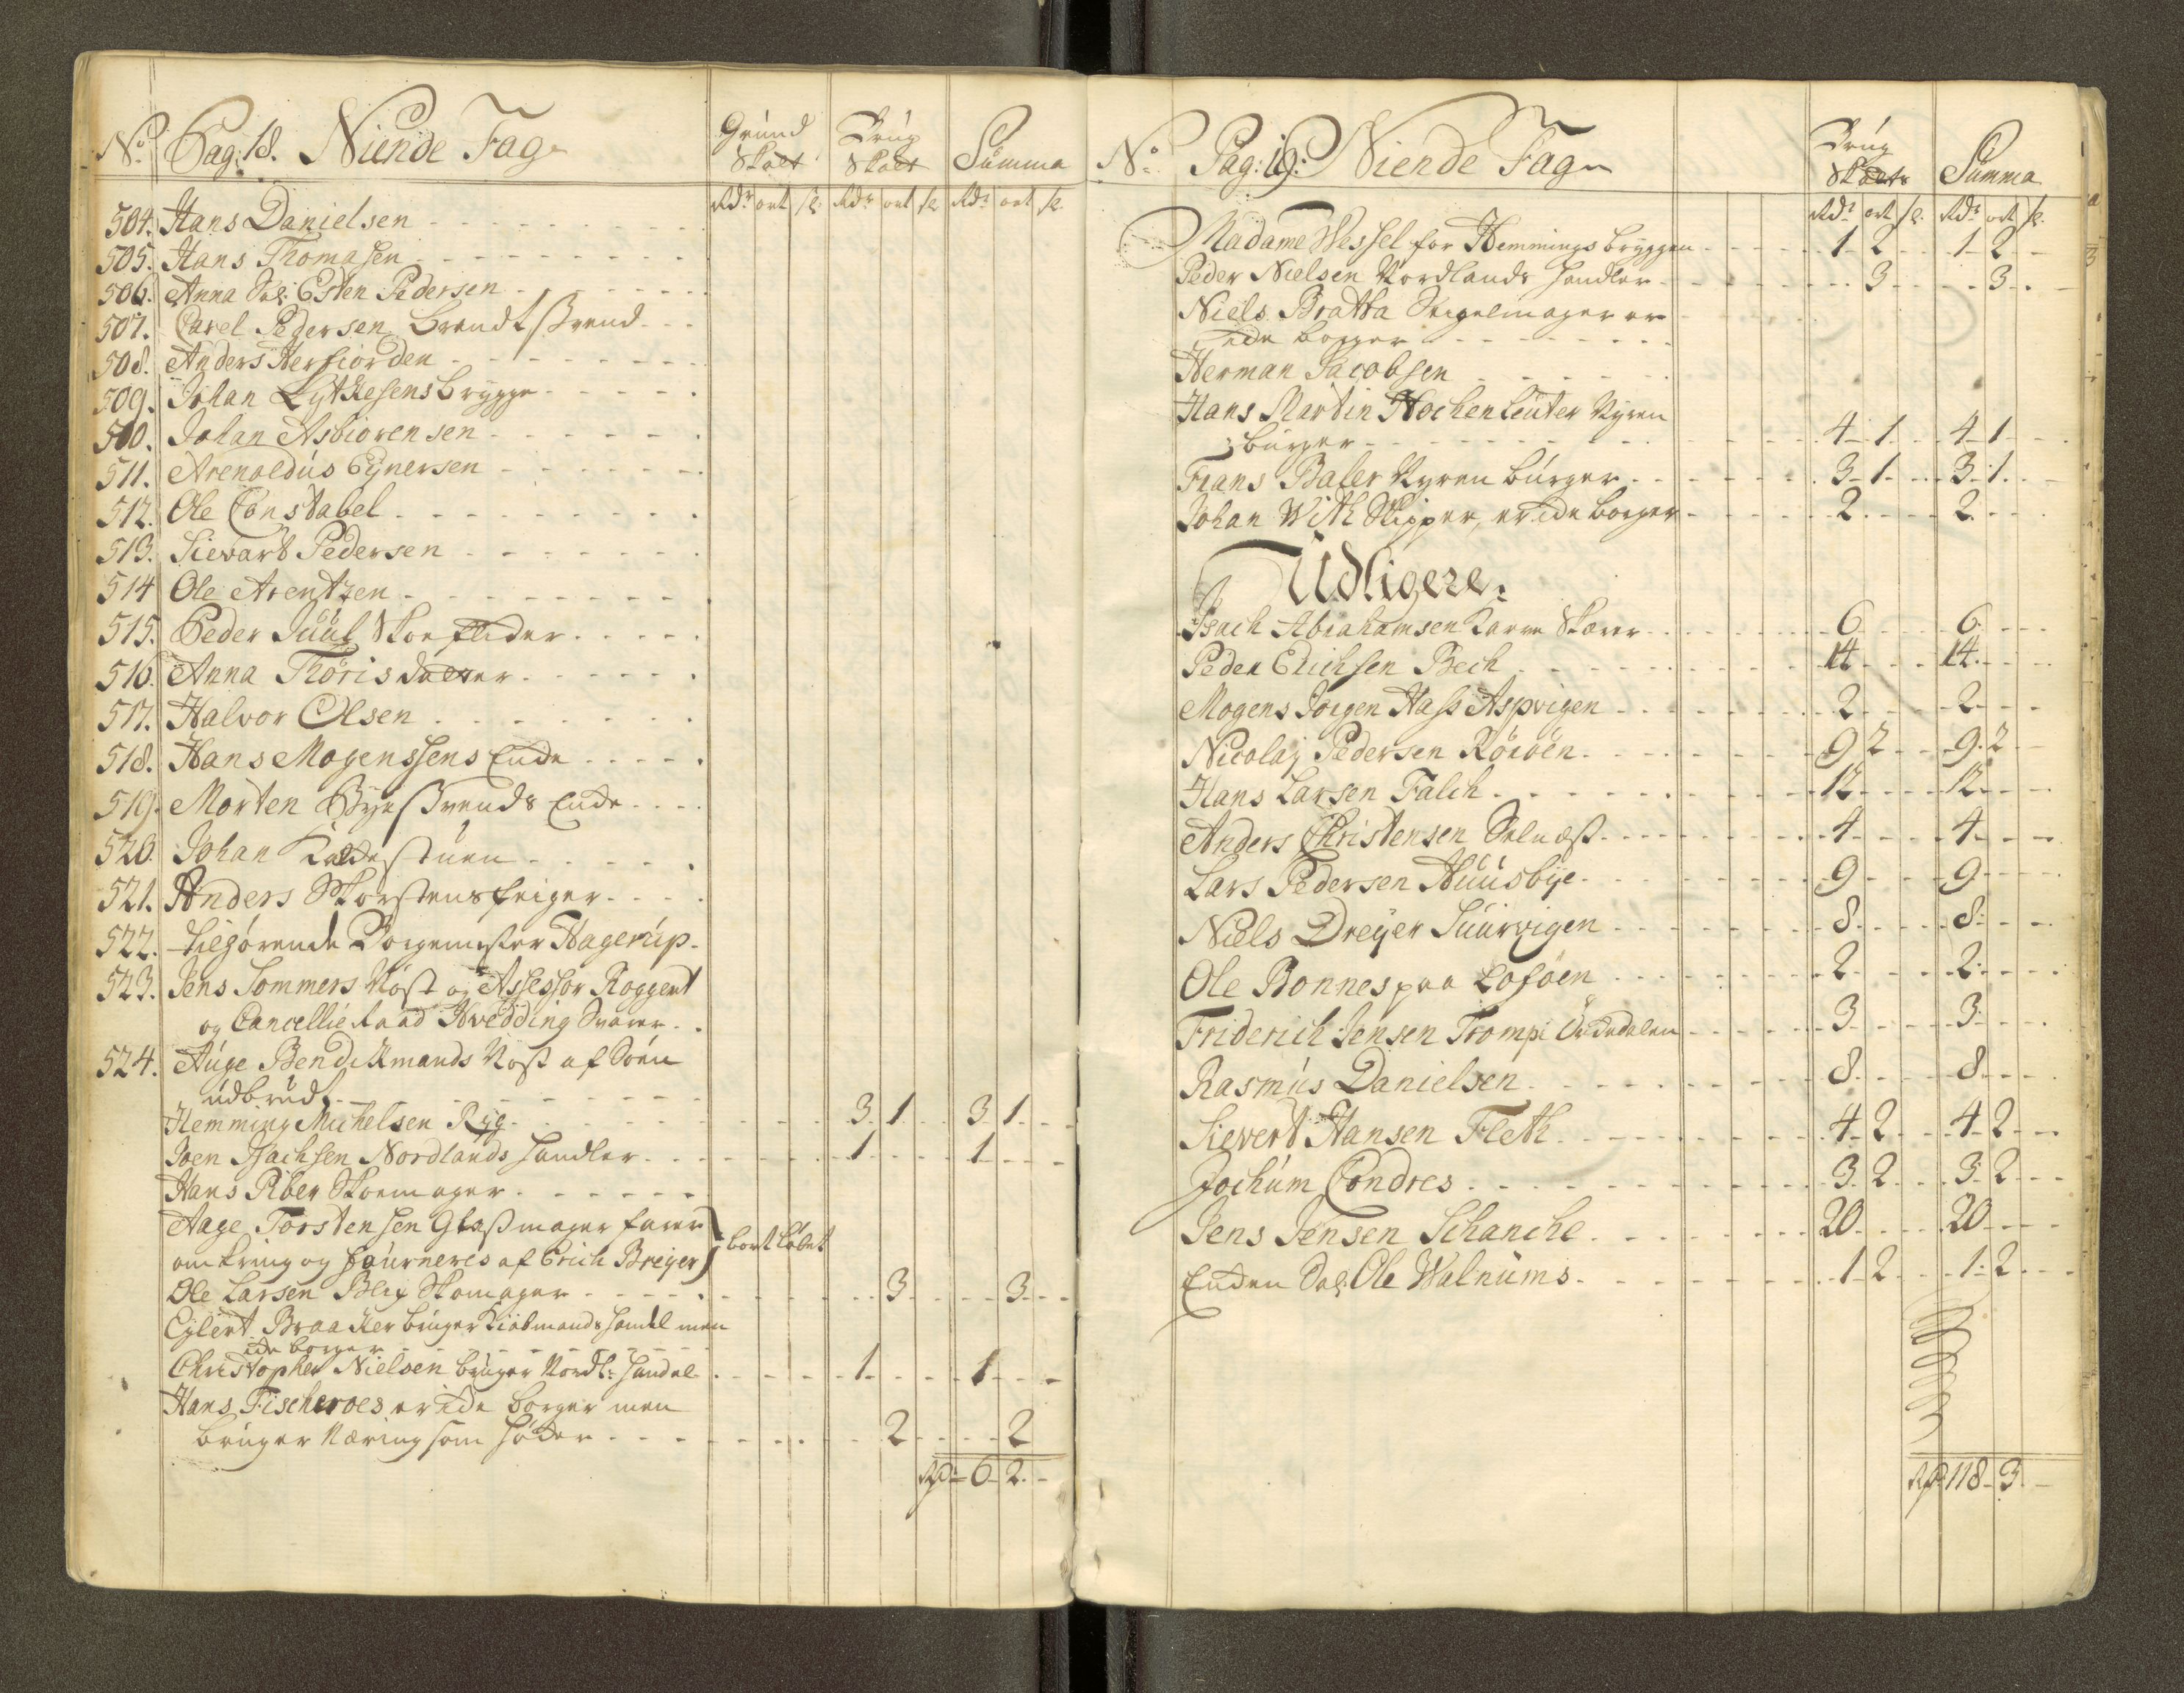 No Pag: 18. Niende Fag Grund Skatt Brug Skatt Summa
Rdr ort s. Rdr ort s. Rdr ort s.
504. Hans Danielsen
505. Hans Thomasen
506. Anna Sal: Esten Pedersen
507. Carel Pedersen brendt Svend
508. Anders Herfiorden
509. Johan Lytkesens brygge
510. Johan Asbiørensen
511. Arenoldus Eynersen
512. Ole Constabel
513. Sievart Pedersen
514 Ole Arentzen
515. Peder Juul Skoeflider
516. Anna Thørisdatter
517. Halvor Olsen
518. Hans Mogenssens Enke
519. Morten Byesvends Enke
520. Johan Kaldestuen
521. Anders Skorstensfeiger
522. tilhørende Borgemester Hagerup
523. Jens Sommers Nøst og Assessor Roggert
og Cancellie Raad Hvedding Svarer
524. Auge Bendikmands Nøst af Søen
udbrudt
Hemming Michelsen Ryg 3 1 3 1
Joen Isachsen Nordlands handler 1 1
Hans Riber Skoemager
Aage Torstensen Glasmager farer
omkring og fourneres af Erich Breyer } bort løbet
Ole Larsen Blix Skomager 3 3
Eylert Braacker bruger Kiøbmands handel men
icke borger
Christopher Nielsen bruger Nordl: handel 1 1
Hans Fischeroes er icke borger men
bruger Næring som høker 2 2
Rdr 6 2
No Pag: 19: Niende Fag Brug Skatt Summa
Rdr ort s. Rdr ort s.
Madame Wessel for Hemmings bryggen 1 2 1 2
Peder Nielsen Nordlands handler 3 3
Niels Bratta Segelmager er
icke borger
Herman Jacobsen
Hans Martin Hochenleuter Nyren
burger 4 1 4 1
Frans Baler Nyren burger 3 1 3 1
Johan With Skipper, er icke borger 2 2
Udligere:
Isach Abrahamsen 6 6
Peder Erichsen Bech 14 14
Mogens Jørgen Hass Aspvigen 2 2
Nicolaj Pedersen Rørøen 9 2 9 2
Hans Larsen Falch 12 12
Anders Christensen Selnæs 4 4
Lars Pedersen Huusbye 9 9
Niels Dreyer Suurvigen 8 8
Ole Bonnes paa Lofoen 2 2
Friderich Jensen Tromps Ørkedalen 3 3
Rasmus Danielsen 8 8
Sievert Hansen Fleth 4 2 4 2
Jochum Condres 3 2 3 2
Jens Jensen Schanche 20 20
Enken Sal: Ole Walnums 1 2 1 2
Rdr 118 3